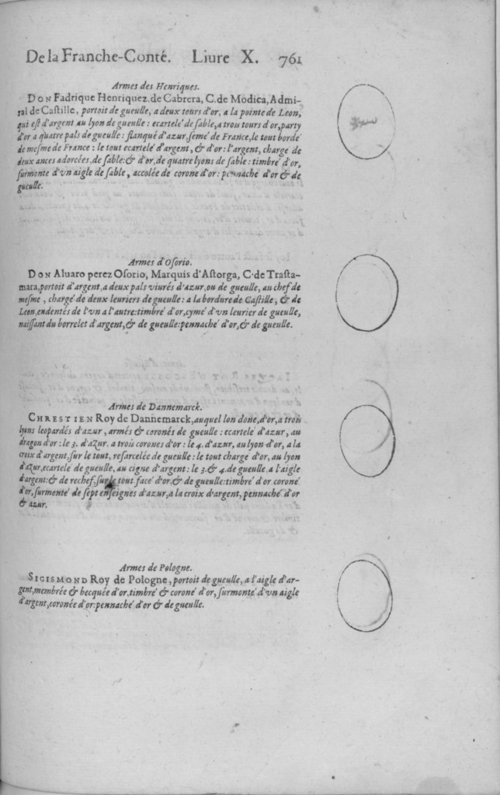 De la Franche-Conté. Liure X. 761
Armes des Henriques.
DON Fadrique Henriquez. de Cabrera, C. de Modica, Admi-
ral de Castille, portoit de gueulle, a deux tours d'or, a la pointe de Leon,
qui est d'argent au lyon de gueulle: ecartelé de sable, a trois tours d'or, party
d'or a quatre pals de gueulle: flanqué d'azur, semé de France, le tout bordé
de mesme de France: le tout ecartelé d'argent, & d'or: l'argent, charge de
deux ances adorcées, de sable: & d'or, de quatre lyons de sable: timbré d'or,
surmonté d'vn aigle de sable, accolée de corone d'or: pennaché d'or & de
gueulle.
Armes d'Osorio.
DON Aluaro perez Osorio, Marquis d'Astorga, C. de Trasta-
mara, portoit d'argent, a deux pals viurés d'azur, ou de gueulle, au chef de
mesme, chargé de deux leuriers de gueulle: a la bordure de Castille, & de
Leon, endentés de l'vn a l'autre: timbré d'or, cymé d'vn leurier de gueulle,
naissant du borrelet d'argent, & de gueulle: pennaché d'or, & de gueulle.
Armes de Dannemarck.
CHRESTIEN Roy de Dannemarck, auquel lon done, d'or, a trois
lyons leopardés d'azur, armés & coronés de gueulle: ecartelé d'azur, au
dragon d'or: le 3. d'azur. a trois corones d'or: le 4. d'azur, au lyon d'or, a la
croix d'argent, sur le tout, resarcelée de gueulle: le tout chargé d'or, au lyon
d'azur, ecartelé de gueulle, au cigne d'argent: le 3. & 4. de gueulle a l'aigle
d'argent: & de rechef, sur le tout facé d'or. & de gueulle: timbré d'or coroné
d'or, surmonté de sept enseignes d'azur, a la croix d'argent, pennaché d'or
& azur.
Armes de Pologne.
SIGISMOND Roy de Pologne, portoit de gueulle, a l'aigle d'ar-
gent, membrée & becquée d'or, timbré & coroné d'or, surmonté d'vn aigle
d'argent, coronée d'or: pennaché d'or & de gueulle.